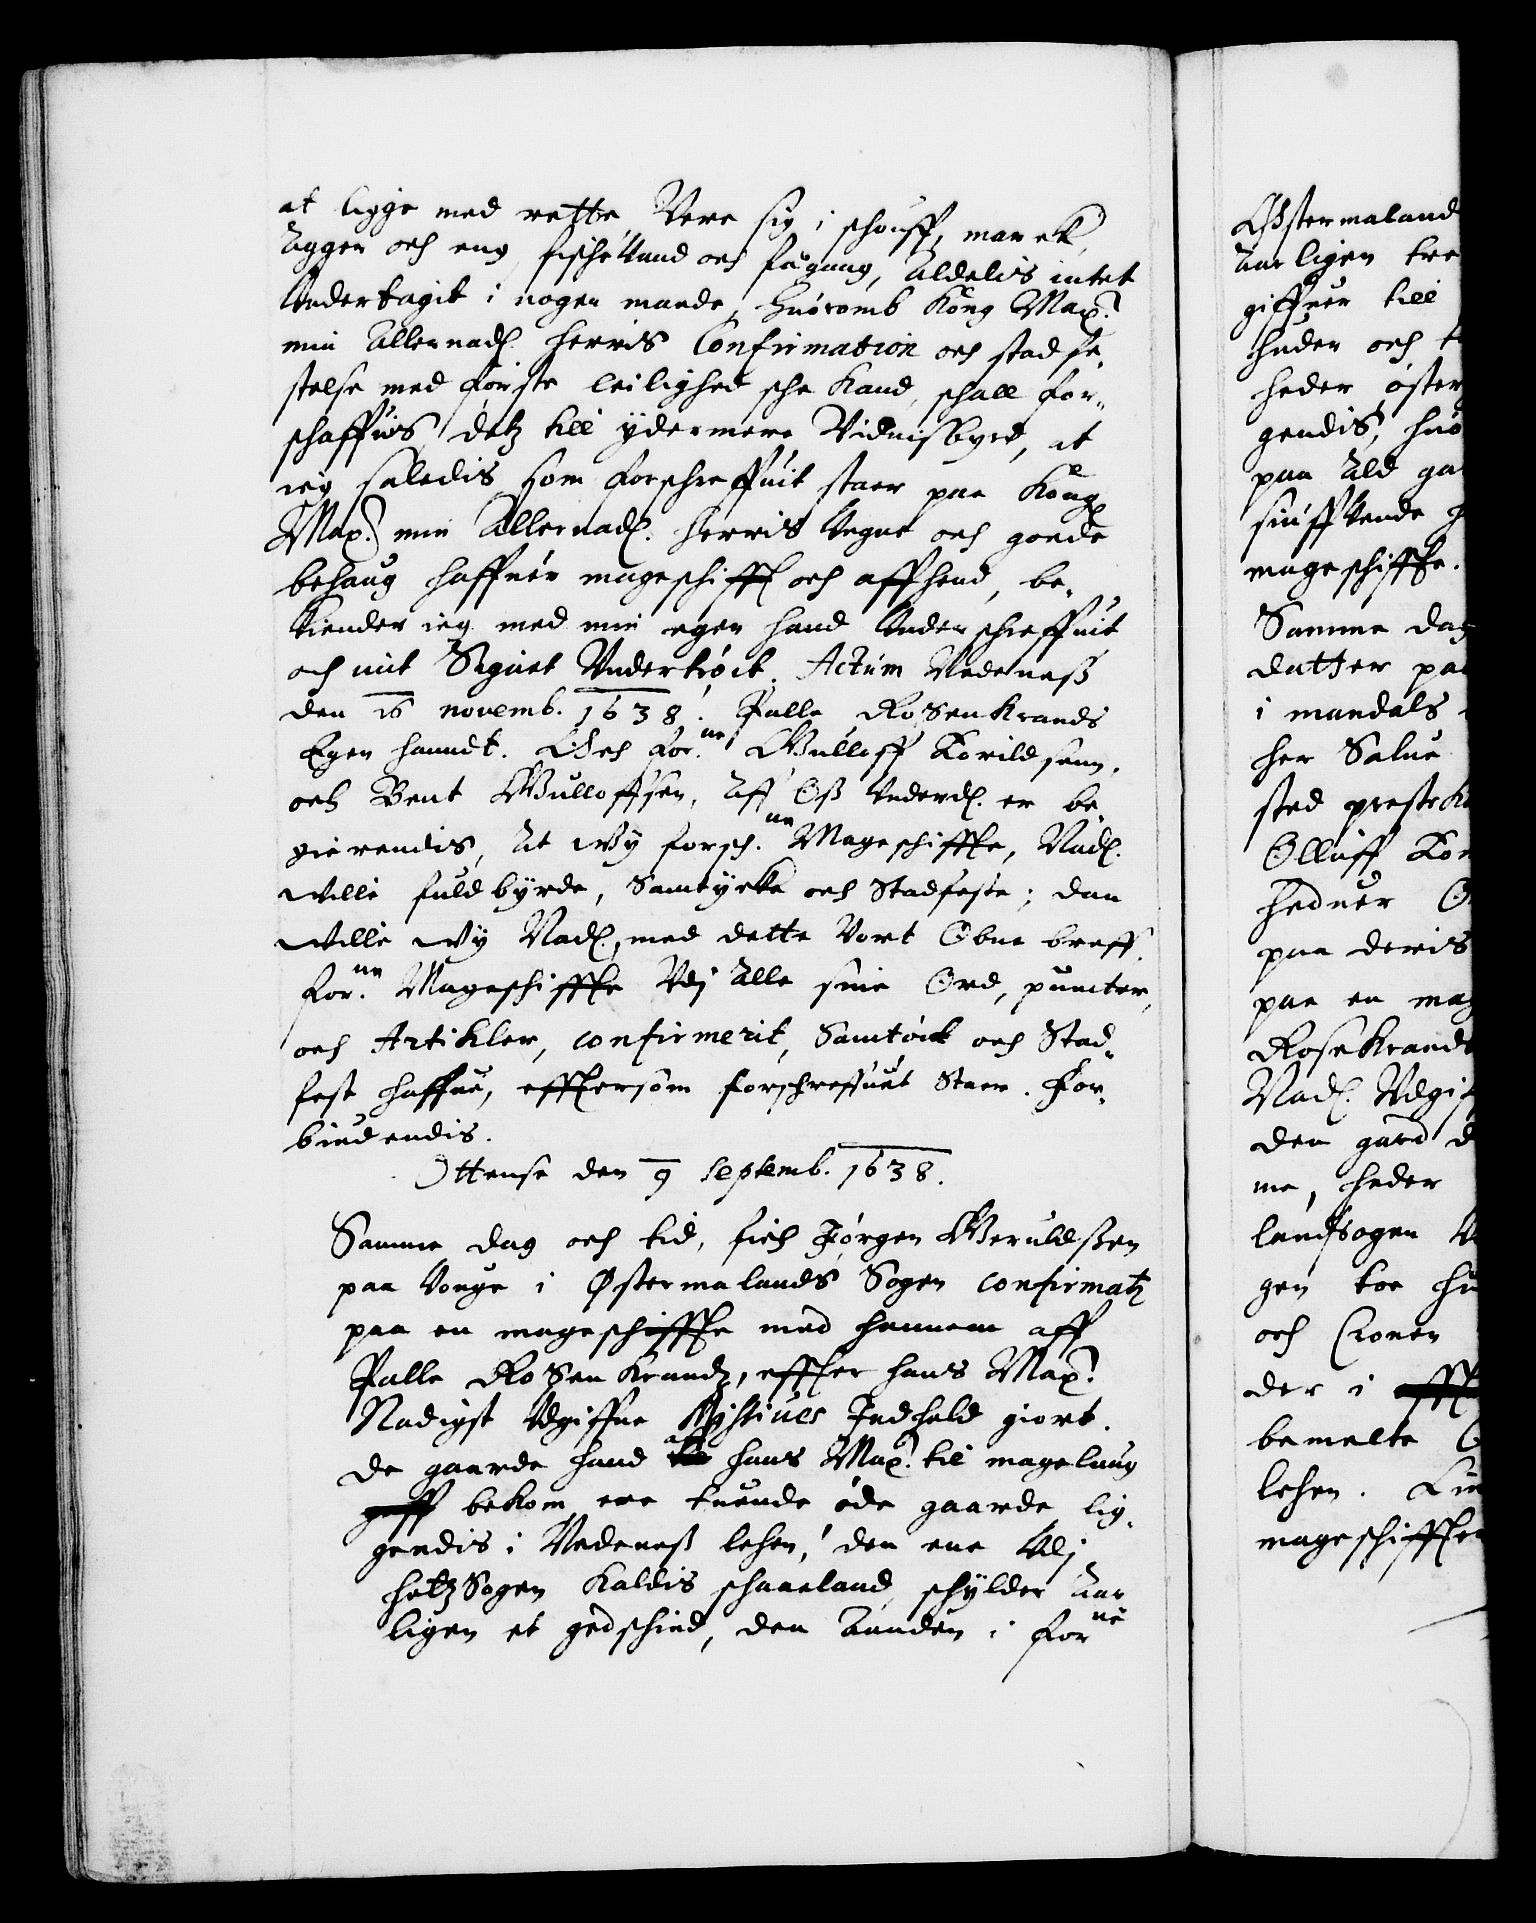 at ligge med rette Vere sig i schouff, marck
agger och eng, fische Vand och fægang, Aldelis intet
Vndertagit i nogen maade, Huoromb Kong Maytt
min Allernad. Herris Confirmation och stadfe-
stelse med første leilighed sche Kand, schall for-
schaffuis, detz till ydermere Vidnisbyrd, at
ieg saledis som forschreffuit staer paa Kong
Maytt min Allernad. Herris Vegne och goede
behaug haffuer mageschifft och affhend, be-
kiender ieg med min egen hand Vnderschreffuit
och mit Signet Vndertrøckt. Actum Nedeness
den 16 novemb. 1638. Palle Rosenkrands
Egen haandt. Och for.ne Gulloff Torildsenn,
och Bent Gulloffsen, Aff Oss Vnderd. er be-
gierendis, At Wy forsch.ne Mageschiffte, Nad.
wille fuldbyrde, Samtycke och Stadfeste; Daa
wille Wy Nad. med dette Vort Obne breff
for.ne Mageschiffte Vdj Alle sine Ord, puncter,
och Artikler, confirmerit, Samtøckt och Stad-
fest haffue, efftersom forschreffuet Staer. For-
biudendis.
Ottense den 9 Septemb. 1638.
Samme dag och tid, fich Jørgen Geruldssen
paa Vouge i Østermalands Sogen confirmatz
paa en mageschiffte med hannem aff
Palle Rosenkrandz, effter hans Maytt
Nadigst Vdgiffne Missiues Indhold giort.
De gaarde hand aff hans Maytt til magelaug
bekom ere tuende øde gaarde lig-
gendis i Nedeness lehen, den ene Vdj
hetz Sogen kaldis schaaeland, schylder Aar-
ligen et gedschind, den Anden i for.ne
Østermaland
Aarligen tre
giffuer till
huder och t
heder øster
gendis, huo
paa Ald ga
siuffVende h
mageschiffte.
Samme dag
datter paa
i mandals
her Salue
sted presteK
Olluff Kor
heduer O
paa deris
paa en mag
Rosekrandt
Nad. Vdgif
den gaard d
me, heder
landsogen V
gen toe hu
och Cronen
der i
bemelte
lehen.
mageschiffter